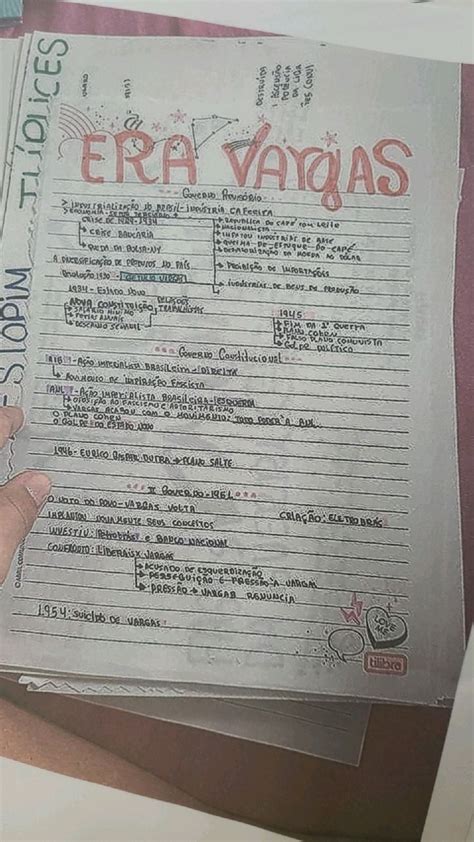 TÍDLICES
ESTOPIM
DESTRUÍDA
ASCENSÃO
POTÊNCIA
DA LIGA
ERA VARGAS
GOVERNO PROVISÓRIO
> INDUSTRIALIZAÇÃO DO BRASIL - INDÚSTRIA CAFEEIRA
CRISE DE 1929-1934
→ CRISE BANCÁRIA
→ QUEDA DA BOLSA-NY
→ REPÚBLICA DO CAFÉ COM LEITE
→ NACIONALISTA
→ IMPATOU INDÚSTRIAS DE BASE
→ QUEIMA-DE-ESTOQUE-DO-CAFÉ
→ DESVALORIZAÇÃO DA MOEDA AO DÓLAR
→ PROIBIÇÃO DE IMPORTAÇÕES
→ INDÚSTRIAS DE BENS DE PRODUÇÃO
A DIVERSIFICAÇÃO DE PRODUTOS NO PAÍS
REVOLUÇÃO 1930 - GETÚLIO VARGAS
1934 - ESTADO NOVO
NOVA CONSTITUIÇÃO
→ SALÁRIO MÍNIMO
→ FÉRIAS ANUAIS
→ DESCANSO SEMANAL
RELAÇÕES
TRABALHISTAS
1945
→ FIM DA 2ª GUERRA
→ PLANO COHEN
→ FALSO PLANO COMUNISTA
→ GOLPE POLÍTICO
GOVERNO CONSTITUCIONAL
AIB - AÇÃO IMPERIALISTA BRASILEIRA - DIREITA
→ MOVIMENTO DE INSPIRAÇÃO FASCISTA
ANL - AÇÃO IMPERIALISTA BRASILEIRA - ESQUERDA
→ OPOSIÇÃO AO FASCISMO E AUTORITARISMO
→ VARGAS ACABOU COM O MOVIMENTO: TODO PODER À ANL
O PLANO COHEN
O GOLPE DO ESTADO NOVO
1946 - EURICO GASPAR DUTRA → PLANO SALTE
II GOVERNO - 1951
O VOTO DO POVO - VARGAS VOLTA
IMPLANTOU NOVAMENTE SEUS CONCEITOS
CRIAÇÃO: ELETROBRÁS
INVESTIU: PETROBRÁS E BANCO NACIONAL
CONFRONTO: LIBERAIS X VARGAS
→ ACUSADO DE ESQUERDIZAÇÃO
→ PERSEGUIÇÃO E PRESSÃO À VARGAS
→ PRESSÃO → VARGAS RENUNCIA
1954: SUICÍDIO DE VARGAS
LOVE
ME
tilibra